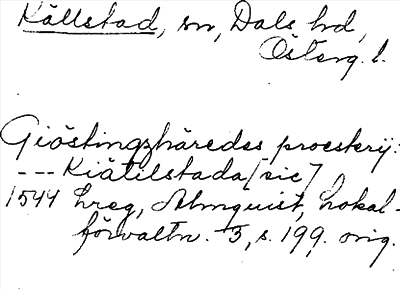 Källstad, sn, Dals hd,
Österg. l.
Giöstingzhäredes proesterij:
--- Kiätilstada [sic]
1544 hreg, Almquist, Lokal-
förvaltn. 3, s. 199, orig.